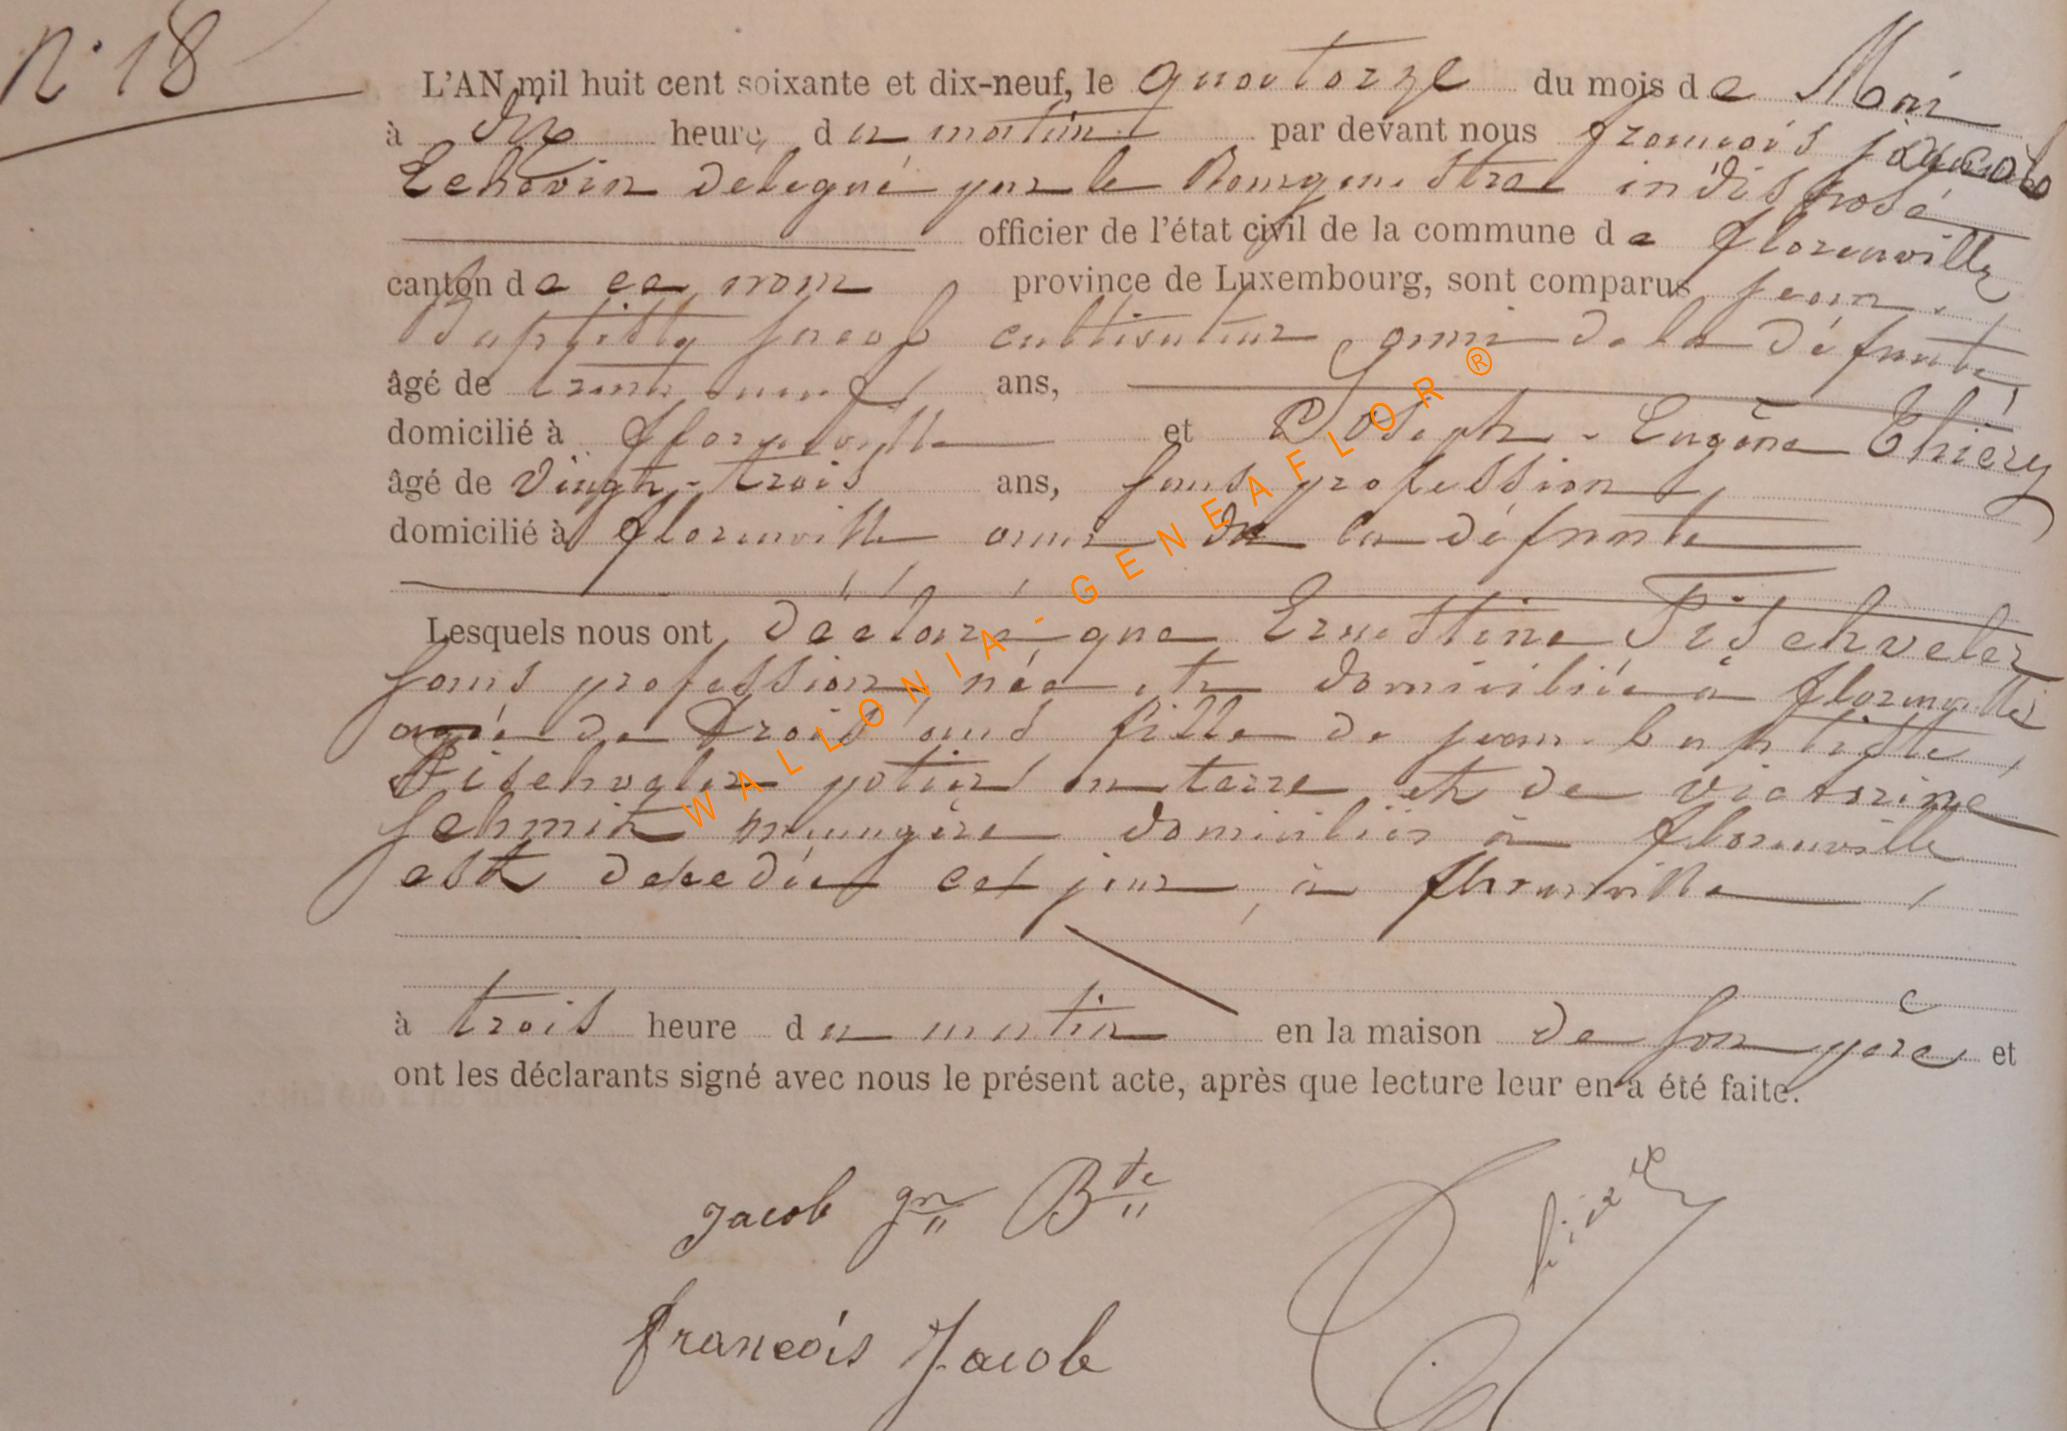 N° 18
L'AN mil huit cent soixante et dix-neuf, le quatorze du mois de Mai
à dix heure, du matin par devant nous francois jacob
Echevin delegué par le Bourgmestre indisposé
officier de l'état civil de la commune de florenville
canton de ce nom province de Luxembourg, sont comparus jean
Baptiste jacob cultivateur ami de la défunte,
âgé de trente neuf ans,
domicilié à florenville et Joseph - Eugène Thiery
âgé de vingt-trois ans, sans profession,
domicilié à florenville ami de la défunte
Lesquels nous ont déclaré que Ernestine Fischveler
sans profession, née et domiciliée à florenville
agée de trois ans fille de jean-baptiste,
Fischveler potier en terre et de victorine
schmit menagère domiciliés à florenville
est décedée cet jour, à florenville,
à trois heure du matin en la maison de son père et
ont les déclarants signé avec nous le présent acte, après que lecture leur en a été faite.
Jacob Jn Bte
francois Jacob
WALLONIA-GENEAFLOR ®